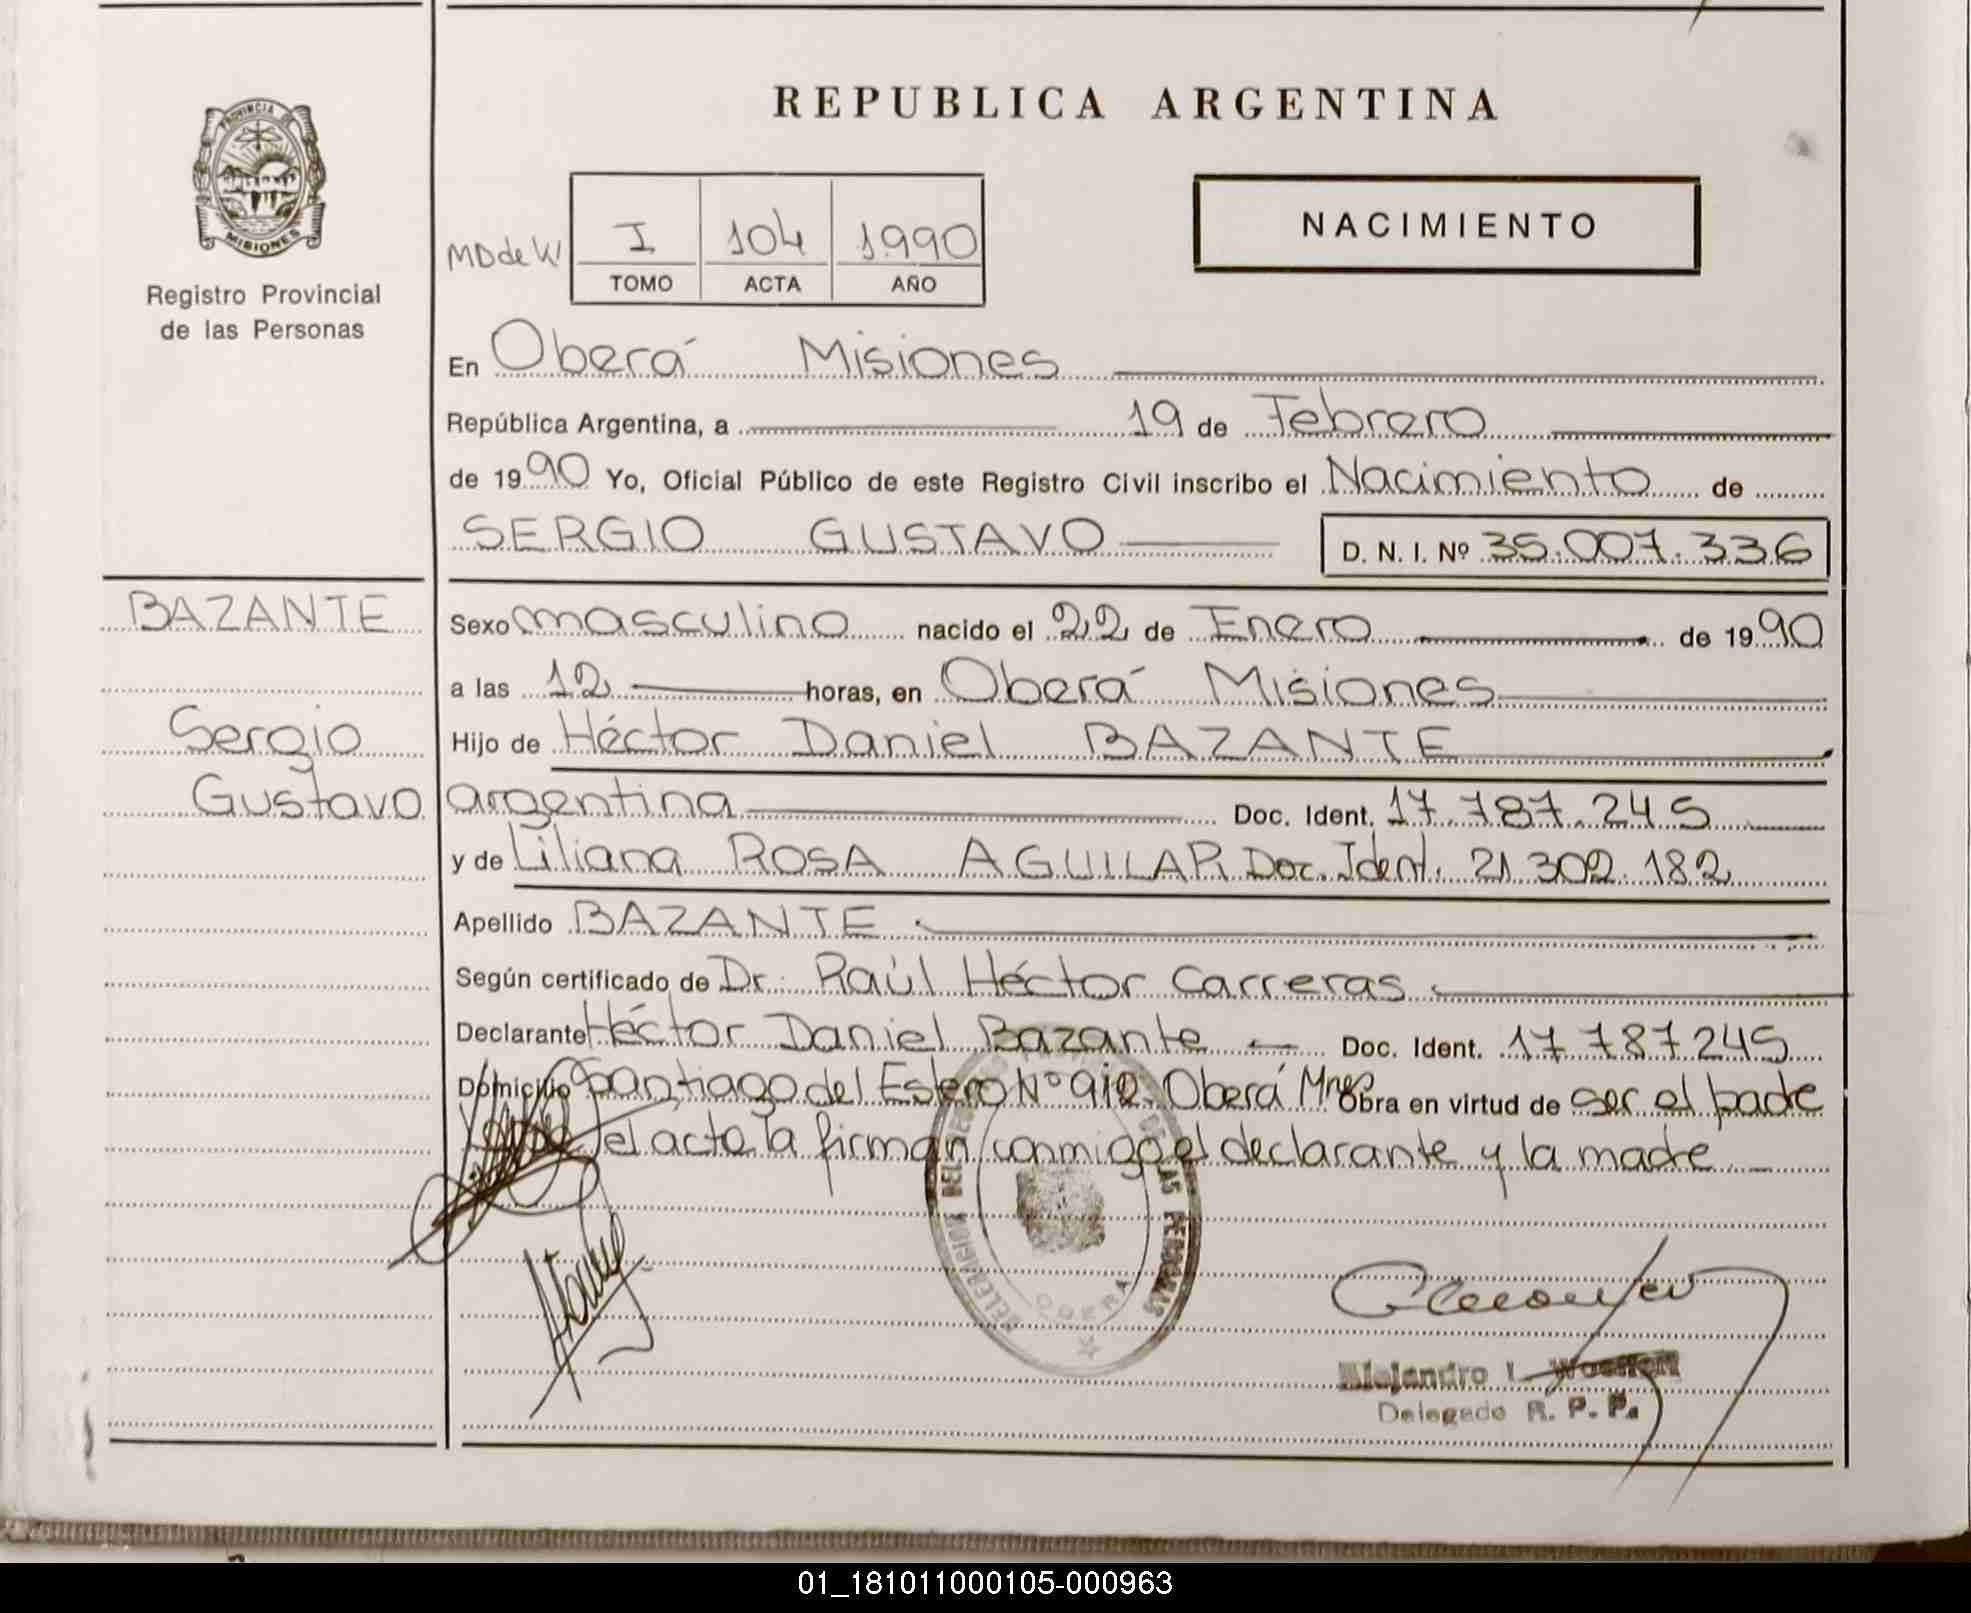 REPUBLICA ARGENTINA
PROVINCIA DE
MISIONES
Registro Provincial
de las Personas
I 104 1990
TOMO ACTA AÑO
NACIMIENTO
En Oberá Misiones
República Argentina, a 19 de Febrero
de 1990 Yo, Oficial Público de este Registro Civil inscribo el Nacimiento de
SERGIO GUSTAVO D. N. I. Nº 35.007.336
BAZANTE
Sergio
Gustavo
Sexo masculino nacido el 22 de Enero de 1990
a las 12 horas, en Oberá Misiones
Hijo de Héctor Daniel BAZANTE
argentina Doc. Ident. 17.787.245
y de Liliana ROSA AGUILAR Doc. Ident. 21.302.182
Apellido BAZANTE
Según certificado de Dr. Raúl Héctor Carreras
Declarante Héctor Daniel Bazante Doc. Ident. 17 787 245
Domicilio Santiago del Estero Nº 912 Oberá Mnes Obra en virtud de ser el padre
el acta la firman conmigo el declarante y la madre
DE LAS PERSONAS
OBERA
Alejandro I.
Delegado R. P. P.
01_181011000105-000963